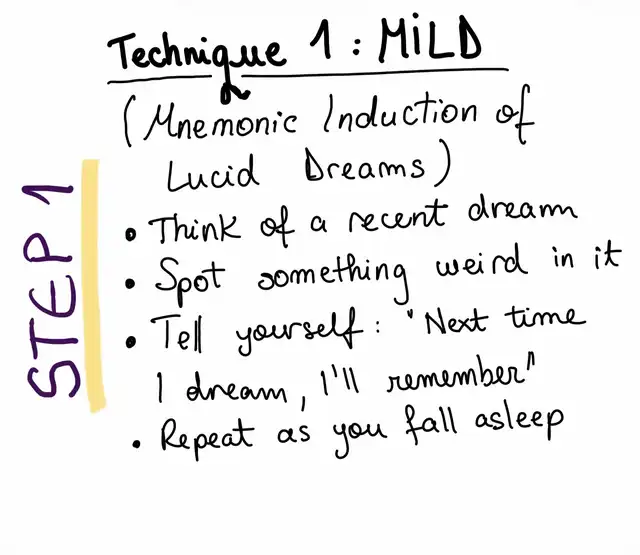 Technique 1: MiLD
(Mnemonic Induction of
Lucid Dreams)
STEP 1
• Think of a recent dream
• Spot something weird in it
• Tell yourself: "Next time
I dream, I'll remember"
• Repeat as you fall asleep